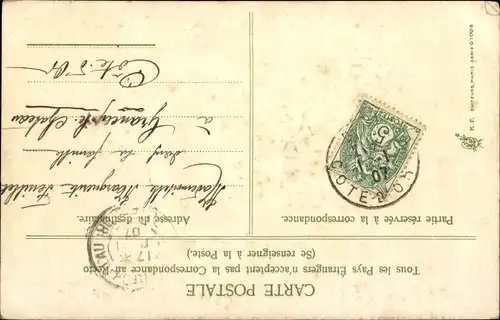 CARTE POSTALE
Tous les Pays Étrangers n'acceptent pas la Correspondance au Recto
(Se renseigner à la Poste.)
Partie réservée à la correspondance.
Adresse du destinataire.
Mademoiselle Marguerite Feuillet
dans sa famille
à Grancey-le-Château
Côte d'Or
COTE D'OR
07
5
K.F. EDITEURS, PARIS SERIE